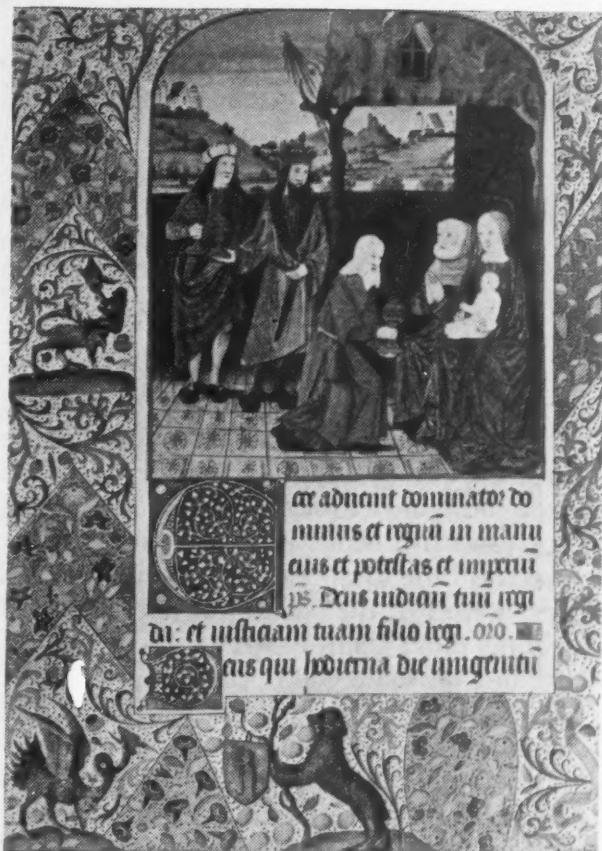 Ecce aduenit dominator do
minus et regnū in manu
eius et potestas et imperiū
ps. Deus iudiciū tuū regi
da: et iusticiam tuam filio regi. oro.
Deus qui hodierna die unigenitū